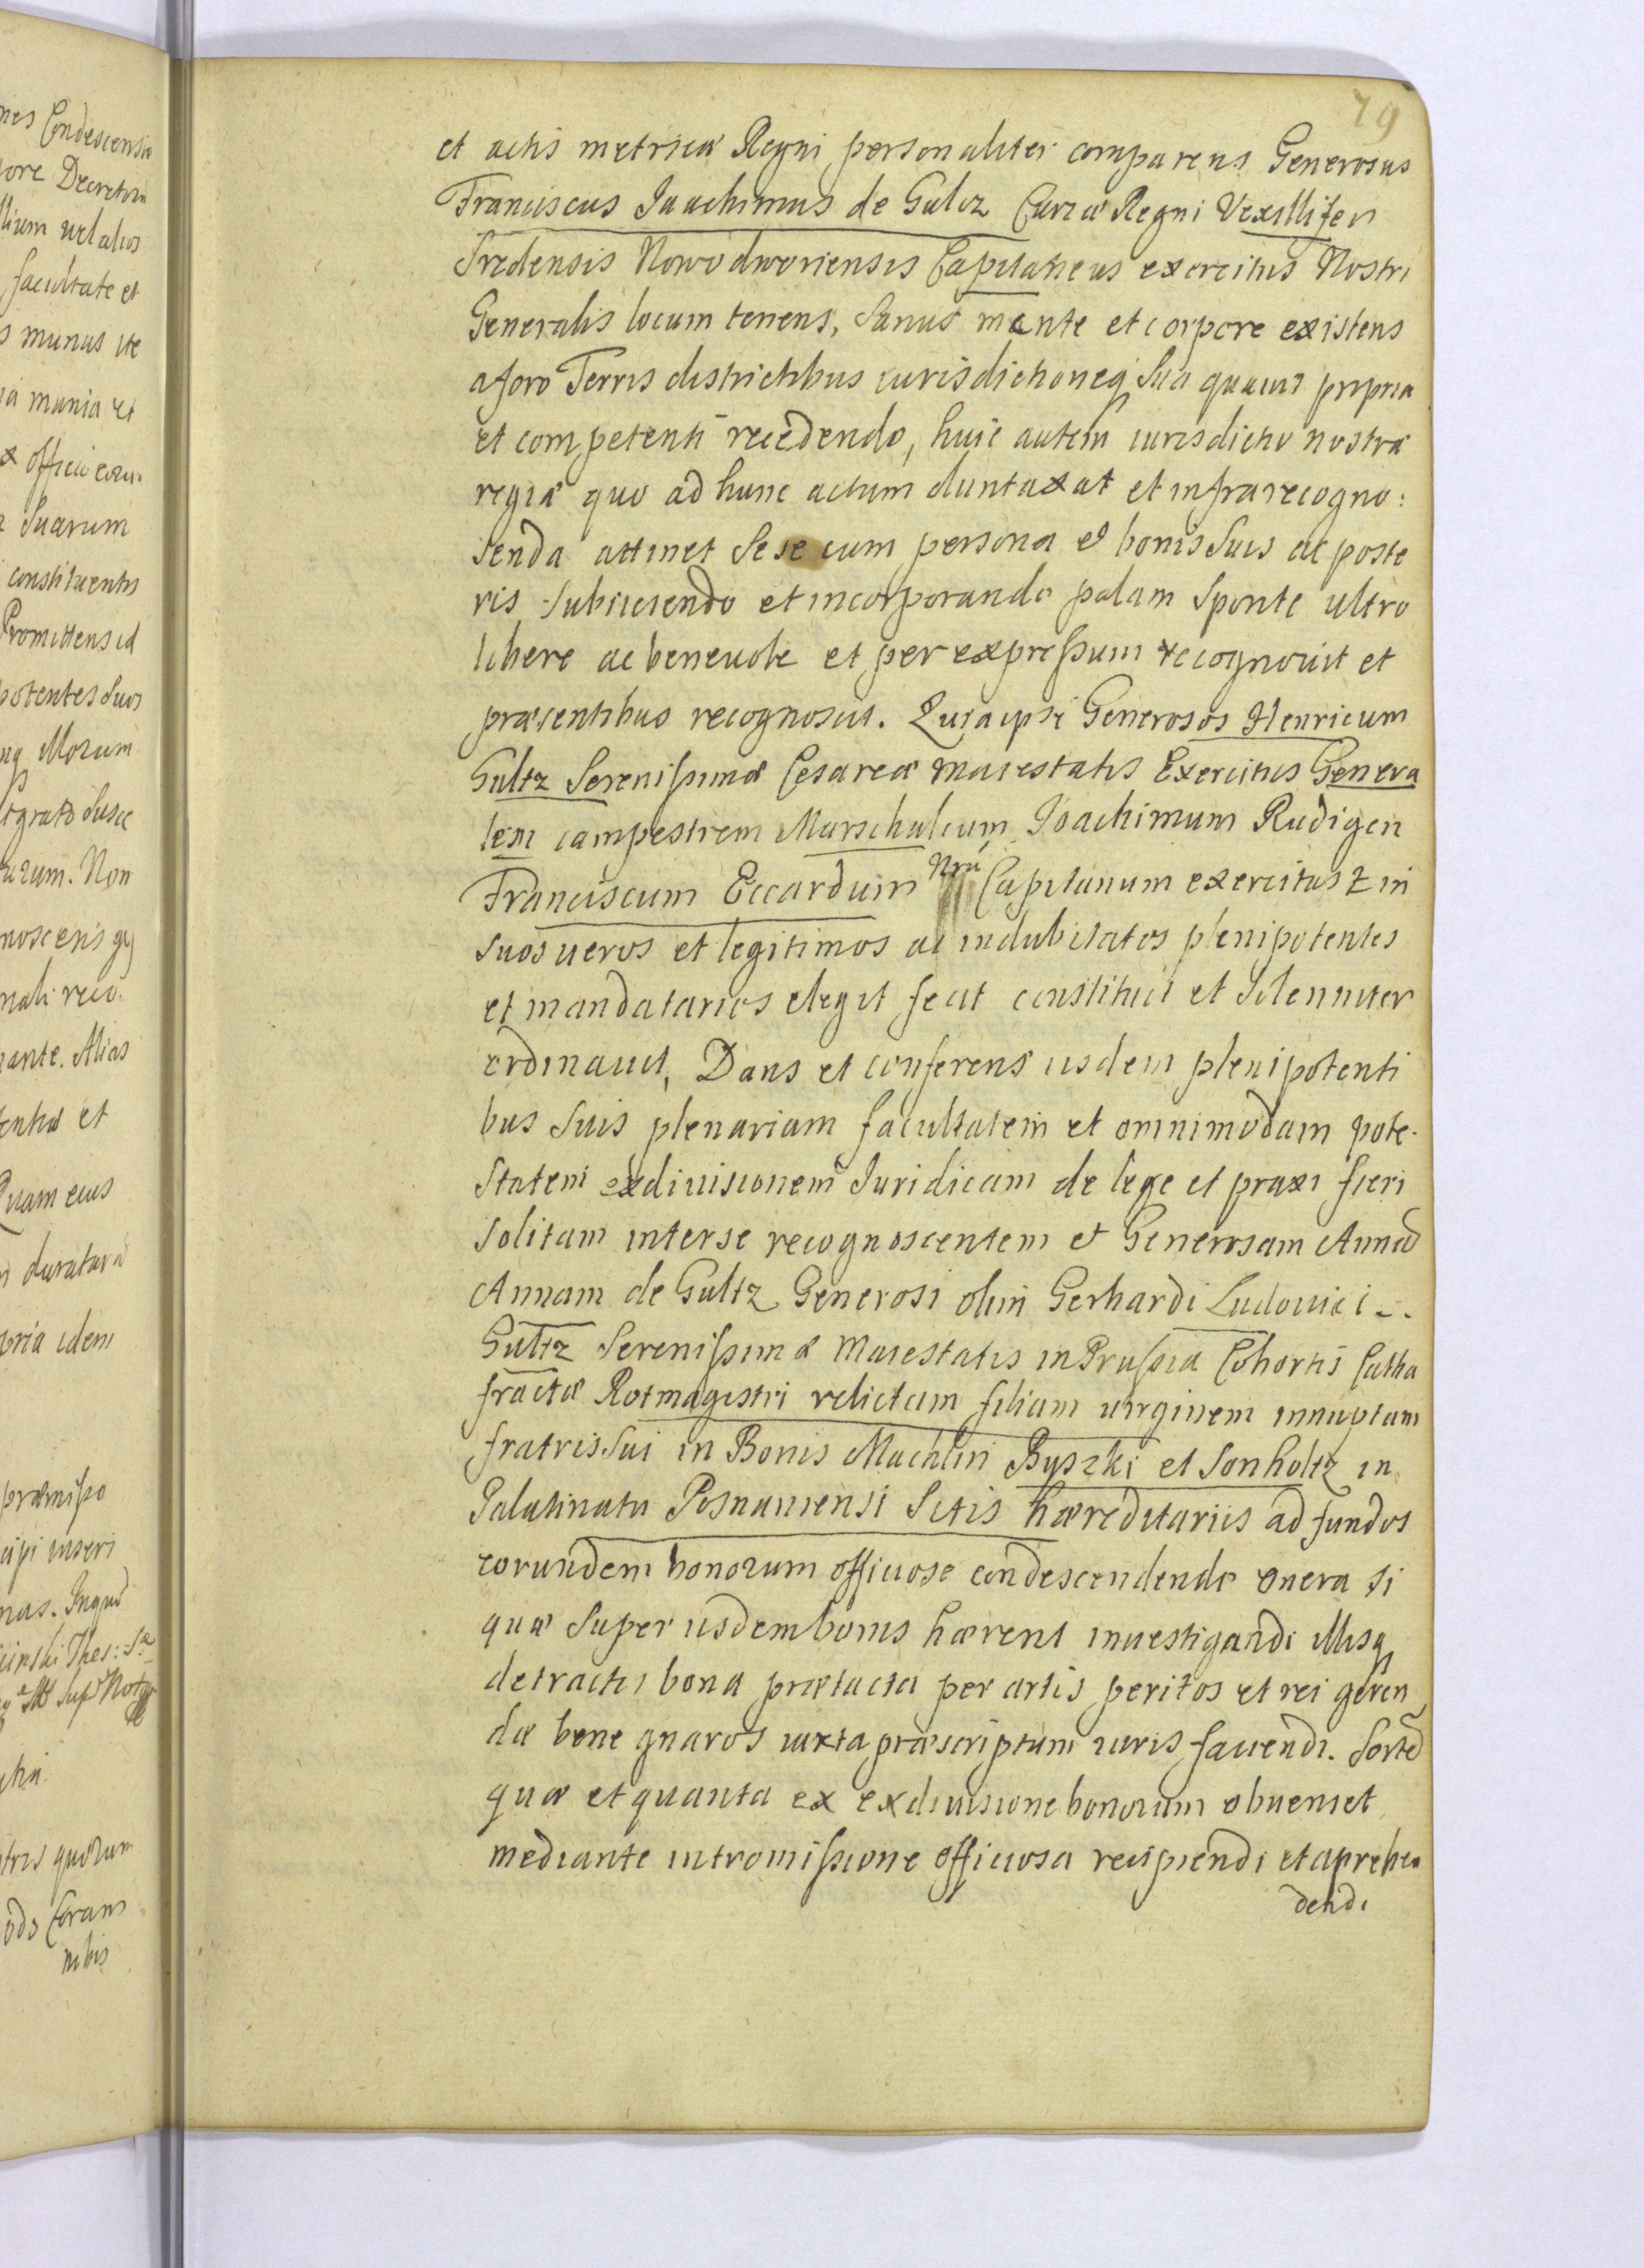 79
et actis metricæ Regni personaliter comparens Generosus
Franciscus Joachimus de Gulcz Curiæ Regni Vexillifer
Sredensis Nowodworiensis Capitaneus exercitus Nostri
Generalis locum tenens, Sanus mente et corpore existens
a foro Terris districtibus iurisdictioneq Sua quauis propria
et competenti recedendo, huic autem iurisdictio nostræ
regiæ quo ad hunc actum duntaxat et infra recogno:
senda attinet Sese cum persona et bonis Suis ac poste
ris Subiiciendo et incorporando palam Sponte ultro
libere ac beneuole et per expressum recognouit et
præsentibus recognoscit. Quia ipse Generosos Henricum
Gultz Serenissimæ Cesareæ Maiestatis Exercitus Genera
lem campestrem Marschalcum Joachimum Rudigen
Franciscum Eccardum Nrm̃ Capitanum exercitus et in
Suos ueros et legitimos ac indubitatos plenipotentes
et mandatarios elegit fecit constituit et Solenniter
ordinauit, Dans et conferens iisdem plenipotenti
bus Suis plenariam facultatem et omnimodam pote-
Statem exdiuisionem Iuridicam de lege et praxi fieri
Solitam inter se recognoscentem et Generosam Annã
Annam de Gultz Generosi olim Gerhardi Ludouici -.
Gultz Serenissimæ Maiestatis in Prussia Cohortis Catha
fractæ Rotmagistri relictam filiam uirginem innuptam
fratris Sui in Bonis Machlin Byszki et Sonholtz in
Palatinatu Posnaniensi Sitis hæreditariis ad fundos
eorundem bonorum officiose condescendendo onera si
quæ Super iisdem bonis hærent inuestigandi illisq
detractis bona prætacta per artis peritos et rei geren
dæ bene gnaros iuxta præscriptum iuris faciendi. Sortẽ
quæ et quanta ex exdiuisione bonorum obueniet
mediante intromissione officiosa recipiendi et aprehen
dendi